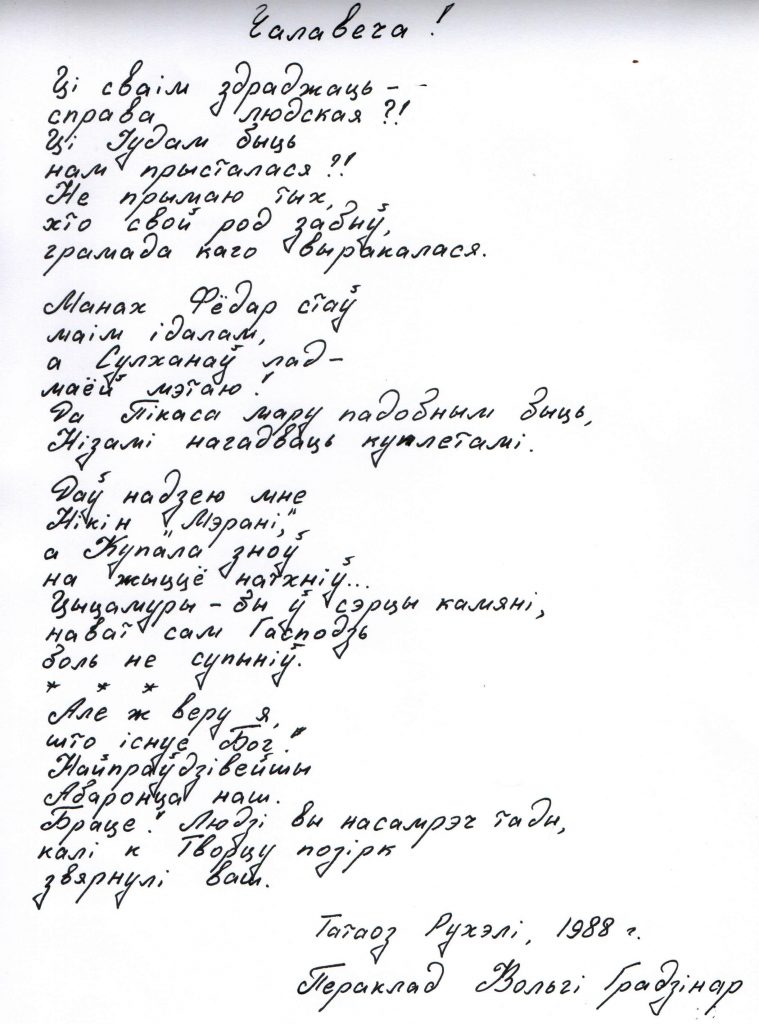 Чалавеча!
Ці сваім здраджаць - -
справа людская?!
Ці Іудам быць
нам прысталася?!
Не прымаю тых,
хто свой род забыў,
грамада каго выракалася.
Манах Фёдар стаў
маім ідалам,
а Сулханаў лад-
маёй мэтаю!
Да Пікаса мару падобным быць,
Нізамі нагадваць куплетамі.
Даў надзею мне
Нікін "Мэрані",
а Купала зноў
на жыццё натхніў...
Цыцамуры - бы ў сэрцы камяні,
нават сам Гасподзь
боль не супыніў.
* * *
Але ж веру я,
што існуе Бог!
Найпраўдзівейшы
Абаронца наш.
Браце! Людзі вы насамрэч тады,
калі к Творцу позірк
звярнулі ваш.
Татаоз Рухэлі, 1988 г.
Пераклад Вольгі Градзінар